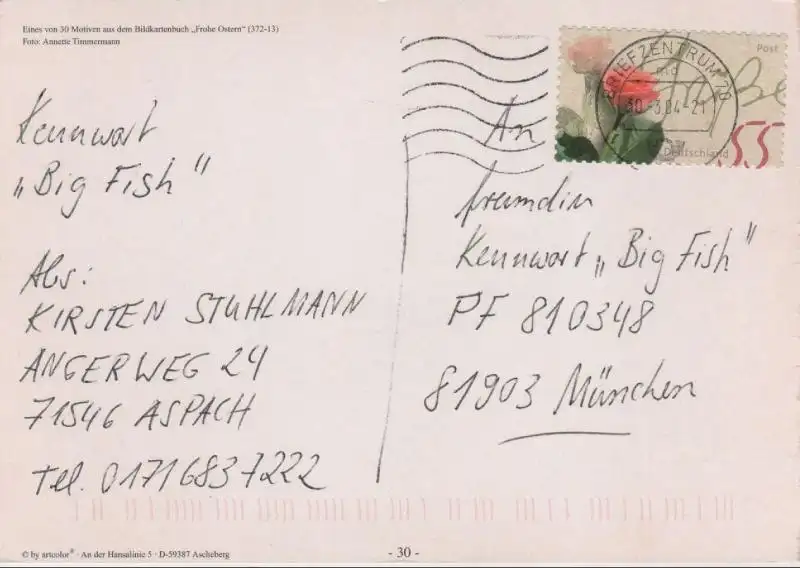 Eines von 30 Motiven aus dem Bildkartenbuch „Frohe Ostern“ (372-13)
Foto: Annette Timmermann
Kennwort
„Big Fish“
Abs:
KIRSTEN STUHLMANN
ANGERWEG 24
71546 ASPACH
Tel. 01716837222
Post
BRIEFZENTRUM 70
30.-3.04-21
Deutschland
55
An
freundin
Kennwort „Big Fish“
PF 810348
81903 München
© by artcolor® · An der Hansalinie 5 · D-59387 Ascheberg
- 30 -